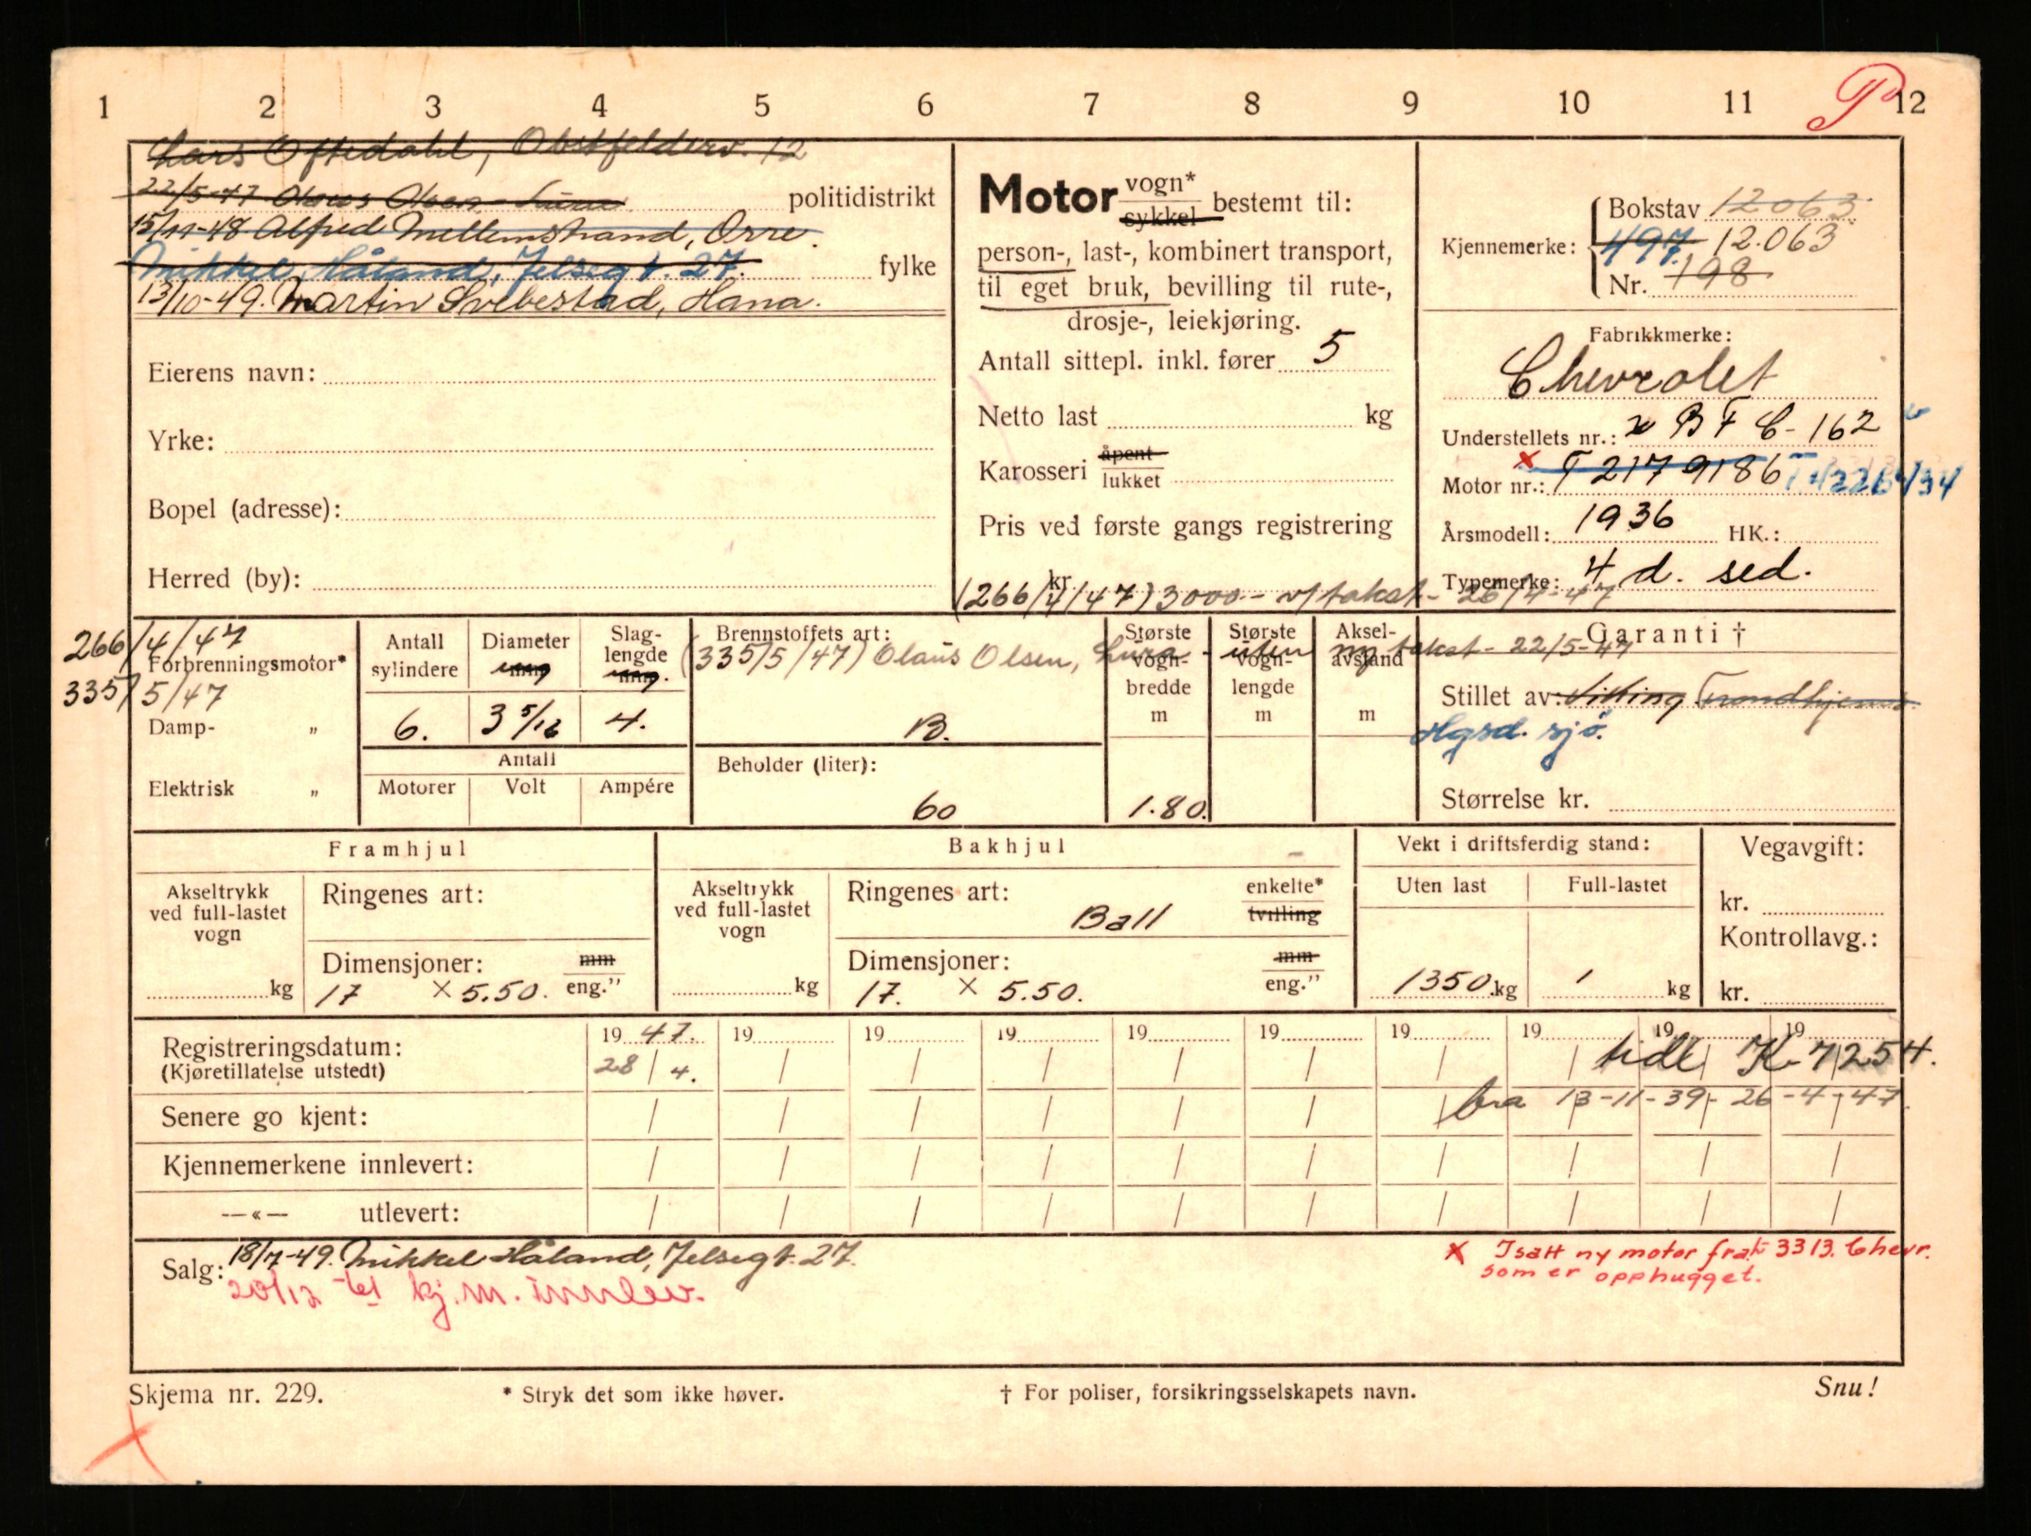 1 2 3 4 5 6 7 8 9 10 11 12
Lars Oftedahl, Obstfelderv. 12
22/5-47 Olaus Olsen Lura politidistrikt
15/11-48 Alfred Mellemstrand, Orre.
Mikkel Håland, Jelsegt. 27. fylke
13/10-49. Martin Svebestad, Hana.
Eierens navn:
Yrke:
Bopel (adresse):
Herred (by):
Motor vogn* sykkel bestemt til:
person-, last-, kombinert transport,
til eget bruk, bevilling til rute-,
drosje-, leiekjøring.
Antall sittepl. inkl. fører 5
Netto last kg
Karosseri åpent lukket
Pris ved første gangs registrering
kr.
(266/4/47) 3000 - v/takst - 26/4-47
Kjennemerke:
Bokstav 12063
497 12.063
Nr. 198
Fabrikkmerke:
Chevrolet
Understellets nr.: x B F C - 162
x Motor nr.: T 2179186
Årsmodell: 1936 HK.:
Typemerke: 4 d. sed.
266/4/47
Forbrenningsmotor*
335/5/47
Damp- „
Elektrisk „
Antall sylindere
6.
Diameter mm
3 5/16
Slaglengde mm.
4.
Antall
Motorer Volt Ampére
Brennstoffets art:
(335/5/47) Olaus Olsen, Lura - uten ny takst - 22/5-47
B.
Beholder (liter):
60
Største vogn-bredde m
1.80.
Største vogn-lengde m
Aksel-avstand m
Garanti †
Stillet av: Viking Trondhjems
Hgsd. sjø.
Størrelse kr.
Framhjul
Akseltrykk ved full-lastet vogn
kg
Ringenes art:
Dimensjoner: mm
17 × 5.50. eng."
Bakhjul
Akseltrykk ved full-lastet vogn
kg
Ringenes art: enkelte*
Ball tvilling
Dimensjoner: mm
17. × 5.50. eng."
Vekt i driftsferdig stand:
Uten last Full-lastet
1350 kg kg
Vegavgift:
kr.
Kontrollavg.:
kr.
19 47. 19 19 19 19 19 19 19 19 19
Registreringsdatum:
(Kjøretillatelse utstedt) 28/4. tidl K-7254.
Senere go kjent: bra 13-11-39 - 26-4-47.
Kjennemerkene innlevert:
—«— utlevert:
Salg: 18/7-49. Mikkel Håland, Jelsegt. 27.
20/12 kj.m. innlev.
x Isatt ny motor fra 3313. Chevr.
som er opphugget.
Skjema nr. 229. * Stryk det som ikke høver. † For poliser, forsikringsselskapets navn. Snu!